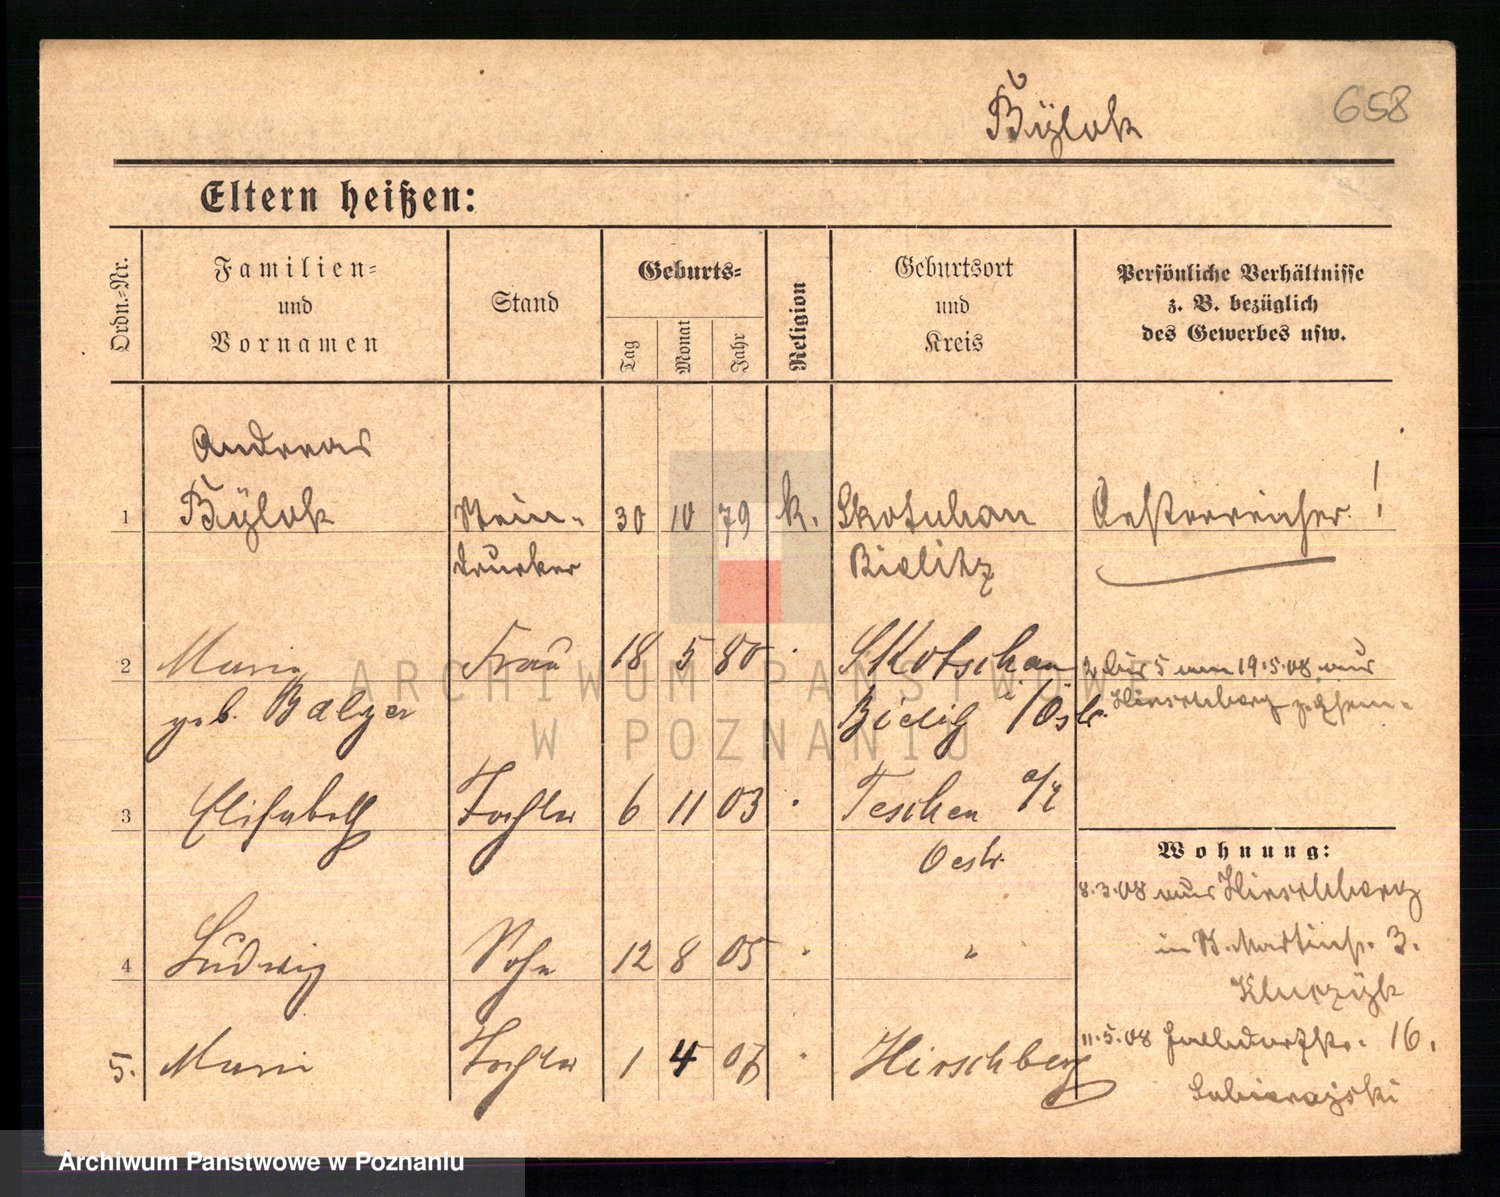 Bÿlok
658
Eltern heißen:
Ordn.-Nr.
Familien-
und
Vornamen
Stand
Geburts-
Tag
Monat
Jahr
Religion
Geburtsort
und
Kreis
Persönliche Verhältnisse
z. B. bezüglich
des Gewerbes usw.
Andreas
1 Bÿlok Stein- 30 10 79 k. Skotschau Oesterreicher!
drucker Bielitz
2 Marie Frau 18 5 80 " Skotschau 2 bis 5 am 19.5.08 aus
geb. Balzar Bielitz /Östr. Hirschberg
3 Elisabeth Tochter 6 11 03 " Teschen
Oestr.
Wohnung:
8.3.08 aus Hirschberg
4 Ludwig Sohn 12 8 05 " " in St. Martinstr. 3.
5. Marie Tochter 1 4 07 " Hirschberg 11.5.08 16.
ARCHIWUM PAŃSTWOWE
W POZNANIU
Archiwum Państwowe w Poznaniu